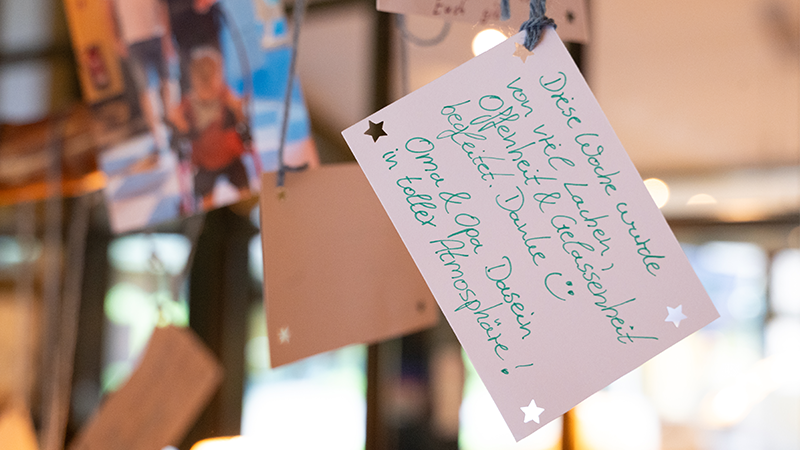 Diese Woche wurde
von viel Lachen,
Offenheit & Gelassenheit
begleitet. Danke :)
Oma & Opa Dasein
in toller Atmosphäre!